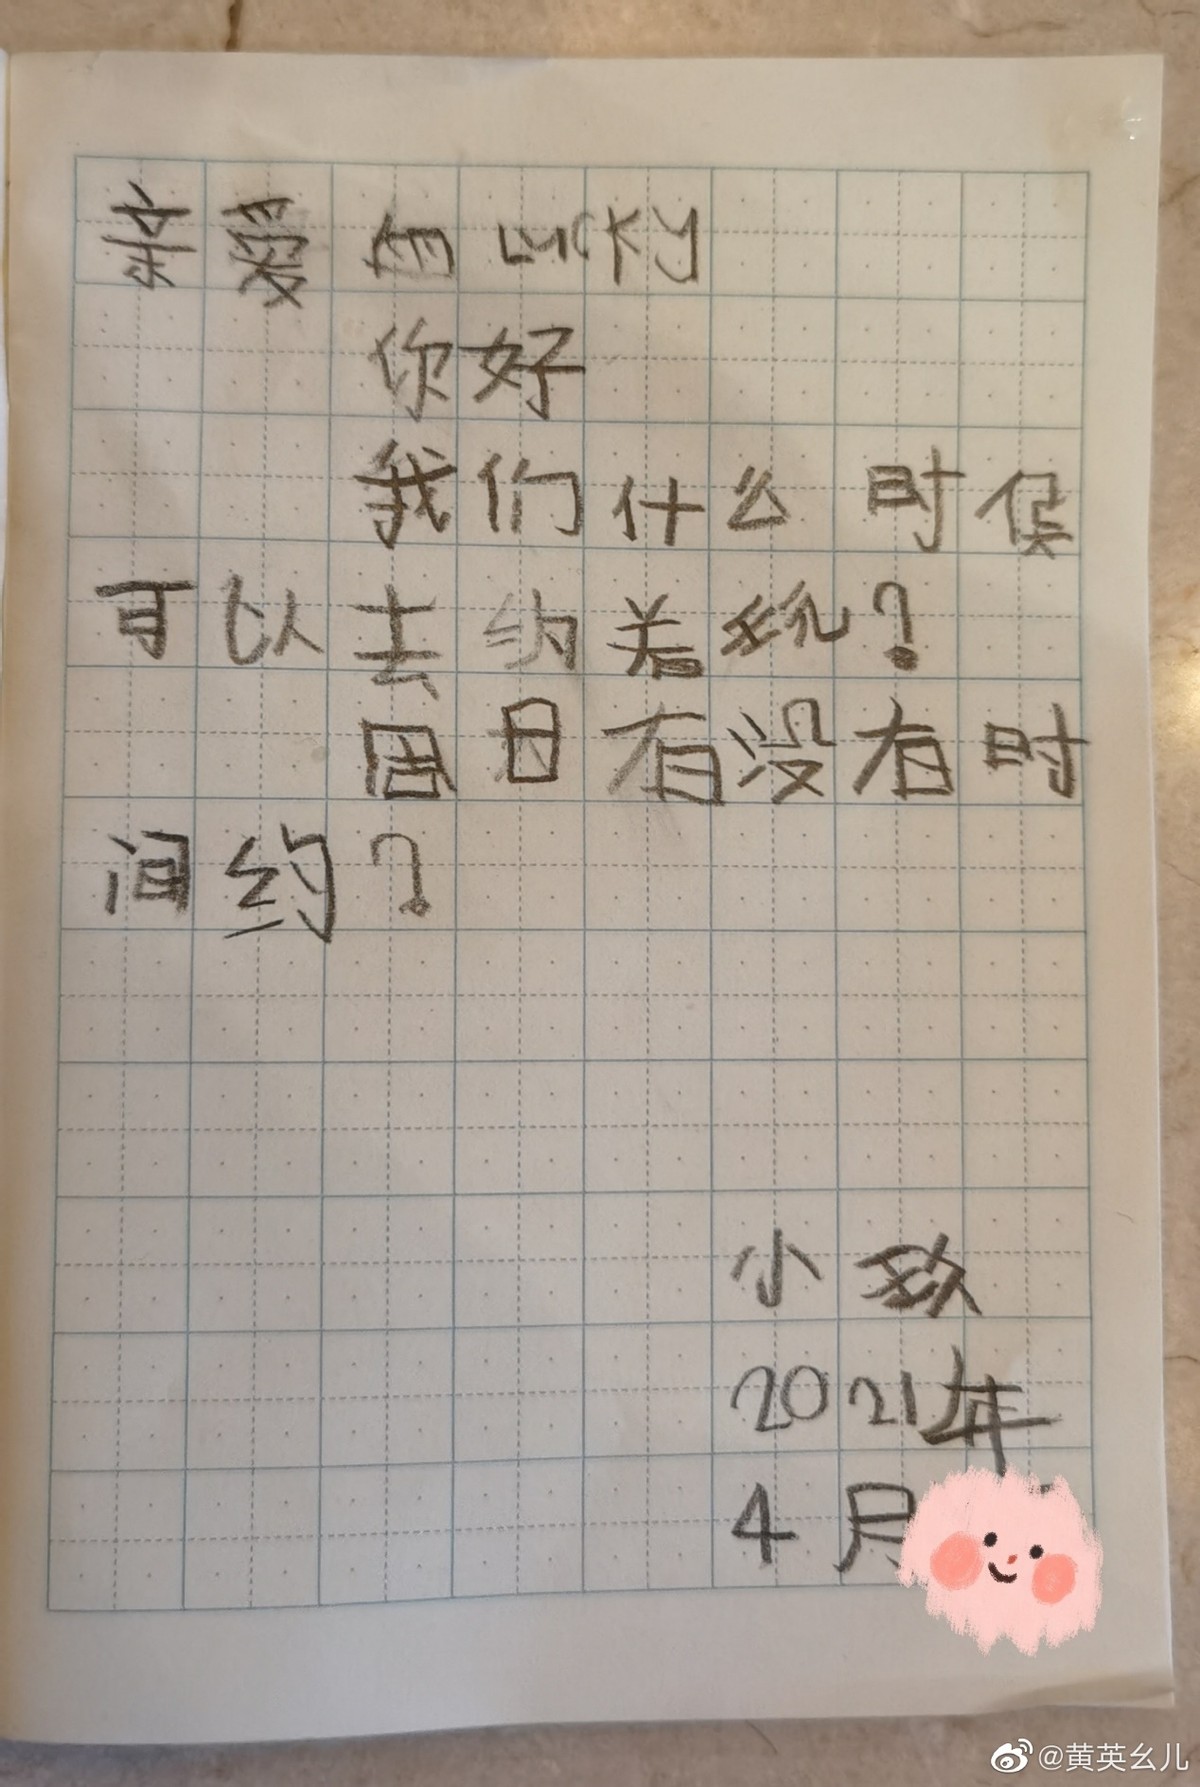 亲爱的Lucky
你好
我们什么时候
可以去约着玩？
周日有没有时
间约？
小玖
2021年
4月
@黄英幺儿